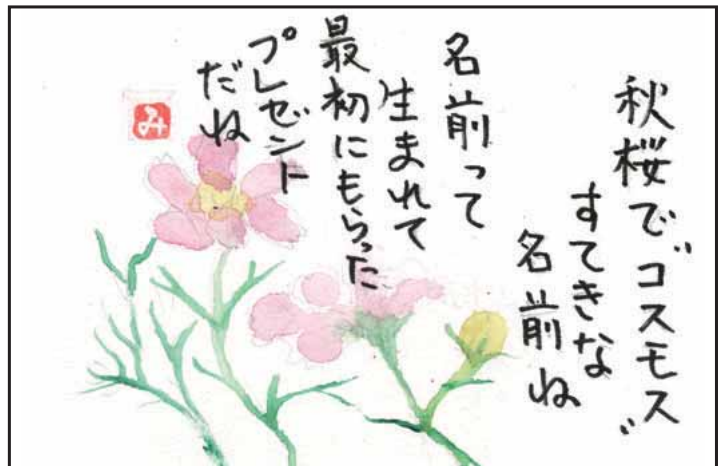 秋桜で〝コスモス〟
すてきな
名前ね
名前って
生まれて
最初にもらった
プレゼント
だね
み